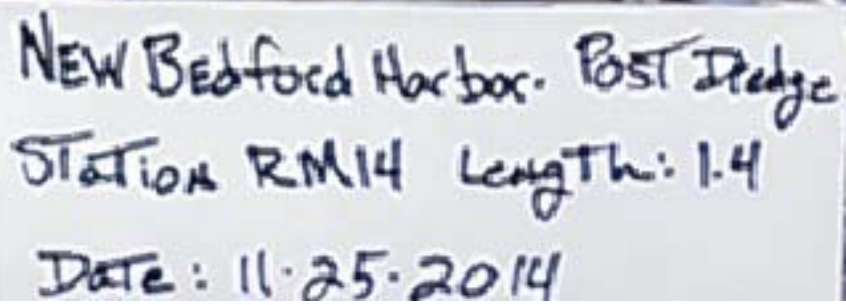 New Bedford Harbor. Post Dredge
Station RM14 Length: 1.4
Date: 11.25.2014